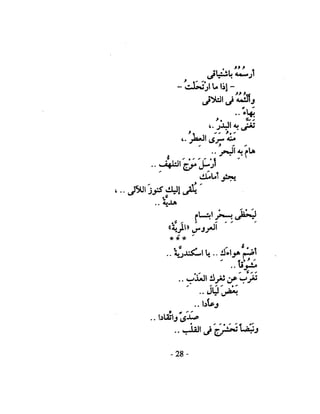 أرسُمُهُ باشتياقي
– إذا ما ارْتَحَلْتُ –
وألثُمُهُ في التلاقي
بَهاءً ..
تَغَنَّى به البدْرُ ،.
مِنْهُ سَرَى العِطْرُ ،.
هامَ به البَحْرُ ..
أرْسَلَ مَوْجَ التلهُّفِ ..
يجثو أمامَكِ
يُلْقى إليكِ كنوزَ اللآلى .. ،
هديةً ..
ليَحْظَى بسِحْرِ ابتسامِ
العروسِ «المَرِيَّة»
* * *
أضُمُّ هواءكِ .. يا اسكندريَّةُ ..
مَشُوقاً ..
تَغرَّبَ عن ثغركِ العَذْبِ ..
بَعْضَ لَيالٍ ..
وعادا
صَدَىً واتِّقادا ..
ونَبْضاً تَحَشْرجَ في القلْبِ ..
- 28 -